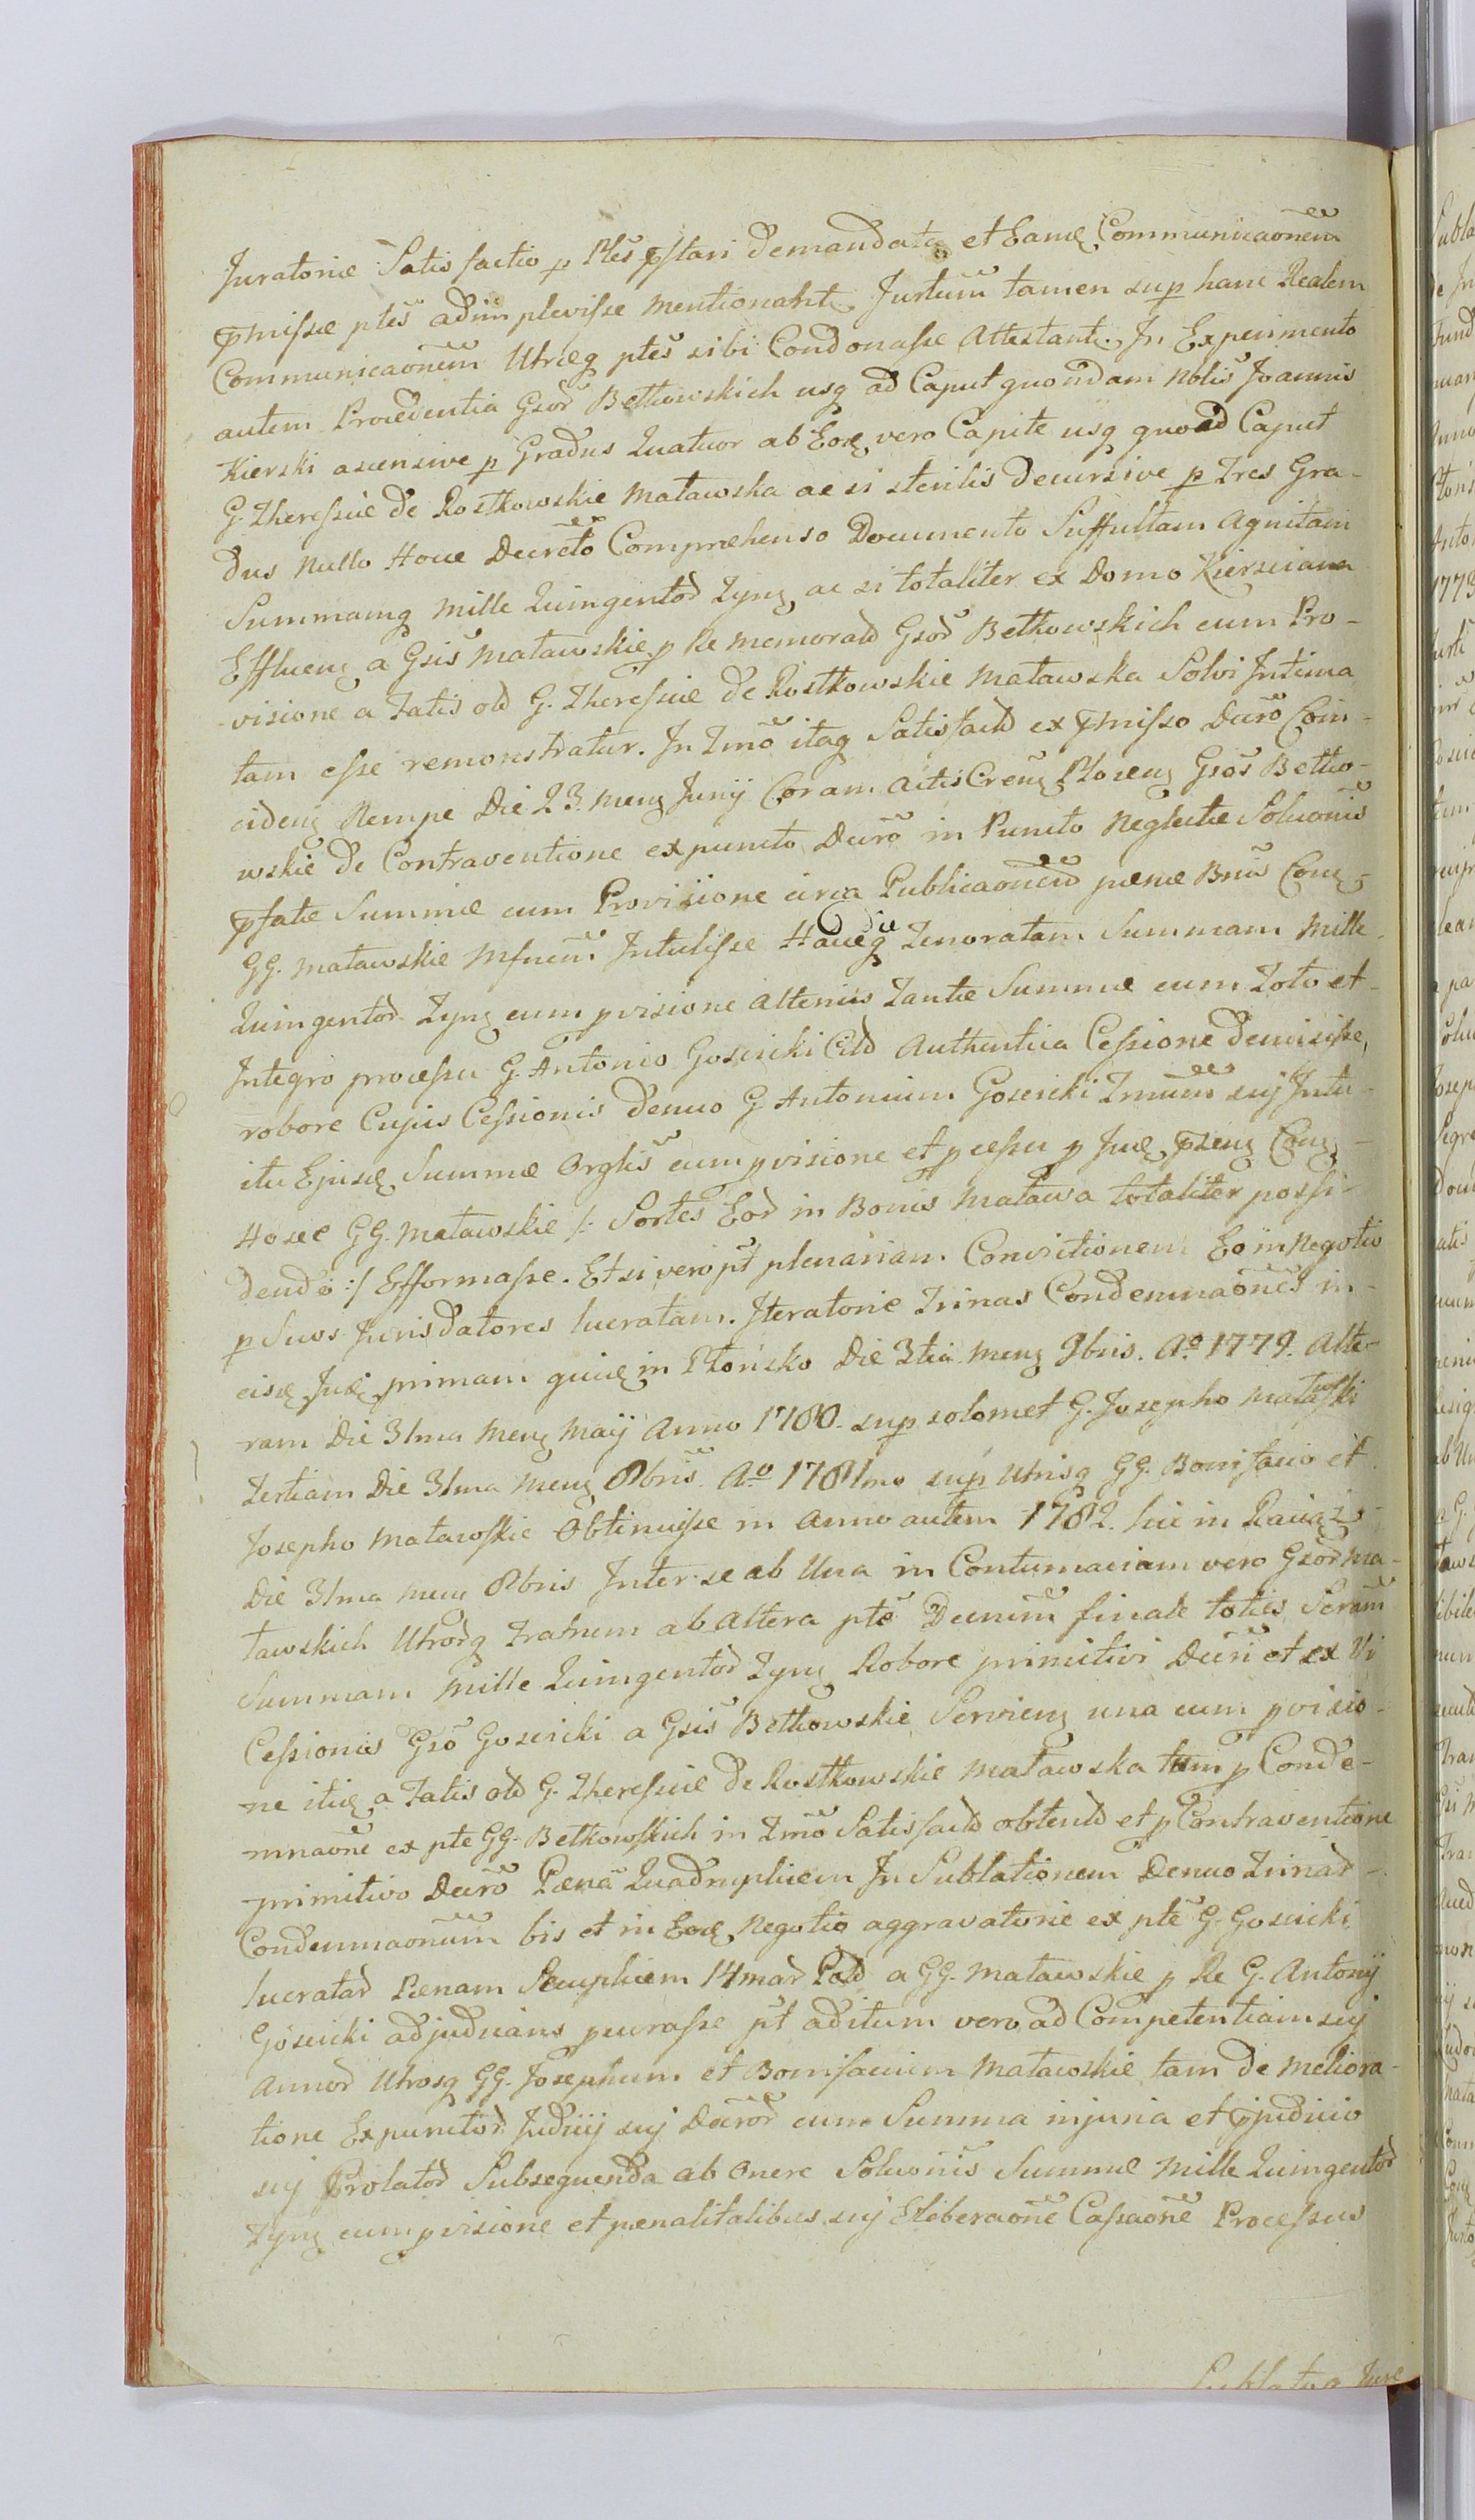 Juratoriæ Satisfactio p Ptes pstari demandata et Eamq Communicaonem
pmissæ ptes adimplevisse mentionant. Jurtum tamen sup hanc Realem
Communicaonem Utræq ptes sibi Condonasse Attestant. In Experimento
autem Procedentia Gsor Betkowskich usq ad Caput quondam Nobis Joannis
Kierski ascensive p Gradus Quatuor ab Eoq vero Capite usq quoad Caput
G. Theressiæ de Rostkowskie Matawska ac si sterilis decursive p Tres Gra-
dus Nullo Hocce Decreto Compræhenso Documento Suffultam Agnitam
Summamq Mille Quingentor Tynf ac si totaliter ex Domo Kiersciana
Effluen a Gsis Matawskie p Re memorato Gsor Betkowskich cum Pro-
visione a Fatis od G. Theressiæ de Rostkowskie Matawska Solvi Intima
tam esse remonstratur. In Tmo itaq Satisfacto ex pmisso Decro Coin-
ciden Nempe Die 23 Mens Junij Coram Actis Cren Plocen Gsos Betko-
wskie de Contraventione expuncto Decro in Puncto Neglectæ Soluonis
pfatæ Summæ cum Provisione circa Publicaonem pænæ Bnis Con-
GG. Matawskie Infuem Intulisse Haucq die Tenoratam Summam Mille
Quingentor Tynf cum pvisione Alterius Tantæ Summæ cum Toto et
Integro processu G. Antonio Goscicki Cito Authentica Cessione demisisse,
robore Cujus Cessionis denuo G Antonium Goscicki Tmum sui Intu-
itu Ejusq Summæ Orglis cum pvisione et pcessu p Jud psen Con-
Hosce GG. Matawskie /: Sortes Eod in Bonis Matawa totaliter possi-
dende :/ Efformasse. Et si vero pt plenariam Convictionem Eo in Negotio
p Suos Jurisdatores lucratam. Iteratorie Trinas Condemnaones in-
eisq Jud primam quiq in Płońsko Die 3tia Mens 9bris. Ao 1779. Alte-
ram Die 31ma Mens Maij Anno 1780. sup solomet G. Josepho Matawski
Tertiam Die 31ma Mens 8bris Ao 1781mo sup Utrisq GG. Bonifacio et
Josepho Matawskie Obtinuisse in Anno autem 1782. hic in Raciąż
Die 31ma Mens 8bris Inter se ab Una in Contumaciam vero Gsor Ma-
tawskich Utrorq Fratrum ab Altera pte Decrum finale toties Scram
Summam Mille Quingentor Tynf Robore primitivi Decri et ex Vi
Cessionis Gso Goscicki a Gsis Betkowskie Servien una cum pvisio-
ne itiq a Fatis od G. Theressiæ de Rostkowskie Matawska tum p Conde-
mnaone ex pte GG. Betkowskich in Tmo Satisfacto obtento et p Contraventione
primitivo Decro Pæna Quadruplicem In Sublationem Denuo Trinar
Condemnaonum bis et in Eoq Negotio aggravatorie ex pte G. Goscicki
lucratar Pænam Sexuplicem 14mar Pol a GG. Matawskie p Re G. Antonij
Goscicki adjudicans pcurasse pt aditum vero ad Competentiam sui
Annor Utrosq GG. Josephum et Bonifacium Matawskie tam de meliora-
tione Expunctor Judicij sui Decror cum Summa injuria et pjudicio
sui Prolator Subsequenda ab Onere Soluonis Summæ Mille Quingentor
Tynf cum pvisione et pænalitatibus sui Eliberaone Cassaone Processus
Sublatua Jure